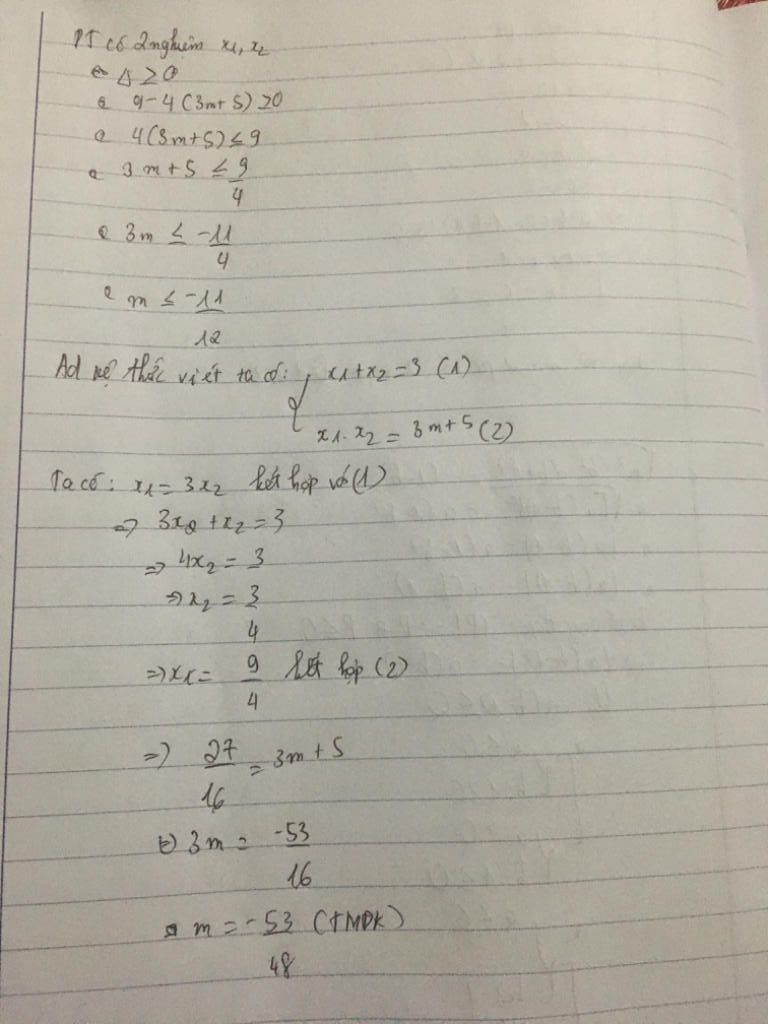 PT có 2 nghiệm x1, x2
⇔ Δ ≥ 0
⇔ 9 - 4(3m+5) ≥ 0
⇔ 4(3m+5) ≤ 9
⇔ 3m + 5 ≤ 9/4
⇔ 3m ≤ -11/4
⇔ m ≤ -11/12
Ad hệ thức viét ta có: { x1 + x2 = 3 (1)
x1 . x2 = 3m + 5 (2)
Ta có: x1 = 3x2 kết hợp với (1)
=> 3x2 + x2 = 3
=> 4x2 = 3
=> x2 = 3/4
=> x1 = 9/4 kết hợp (2)
=> 27/16 = 3m + 5
⇔ 3m = -53/16
⇔ m = -53/48 (TMĐK)